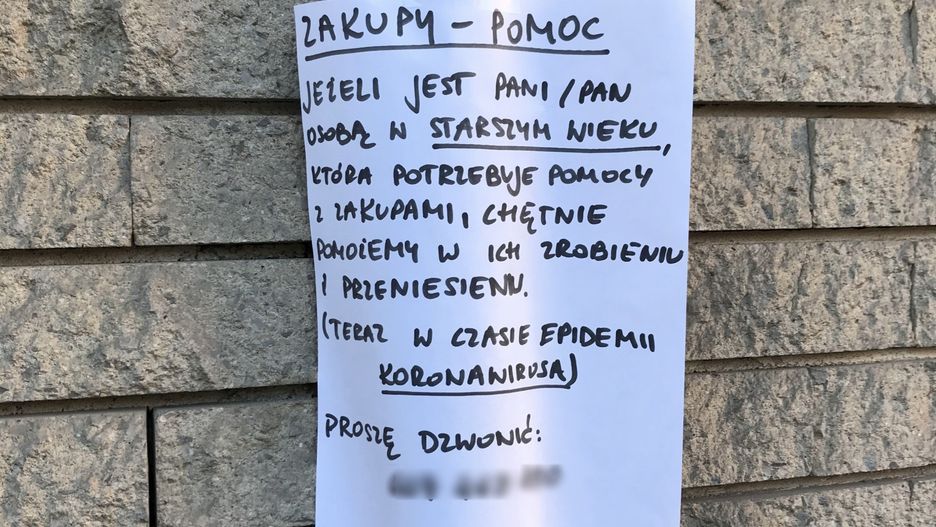 ZAKUPY - POMOC
JEŻELI JEST PANI/PAN
OSOBĄ W STARSZYM WIEKU,
KTÓRA POTRZEBUJE POMOCY
Z ZAKUPAMI, CHĘTNIE
POMOŻEMY W ICH ZROBIENIU
I PRZENIESIENIU.
(TERAZ W CZASIE EPIDEMII
KORONAWIRUSA)
PROSZĘ DZWONIĆ: